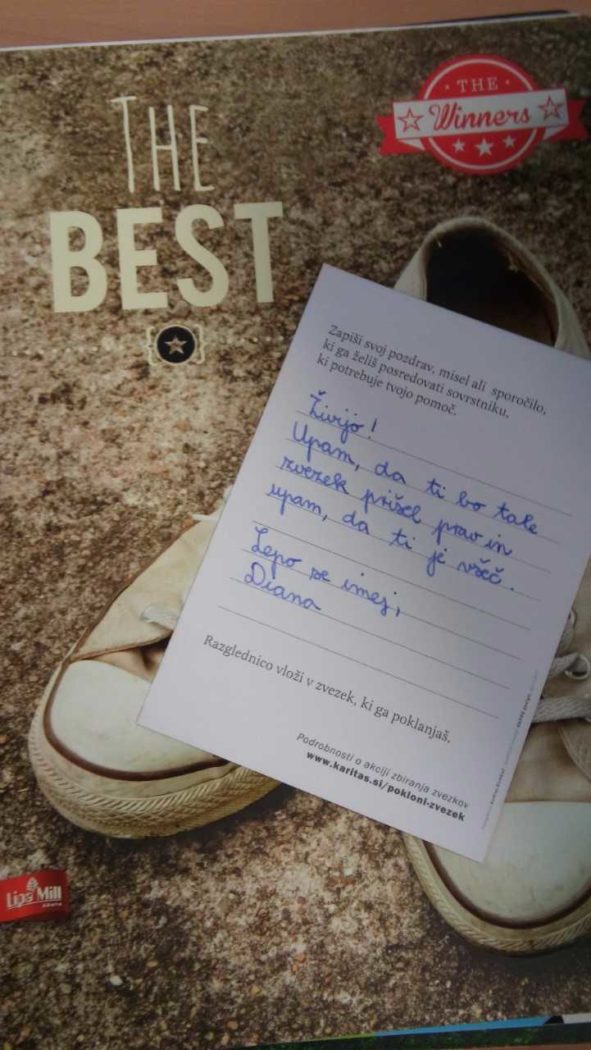 THE
BEST
THE
Winners
Zapiši svoj pozdrav, misel ali sporočilo,
ki ga želiš posredovati sovrstniku,
ki potrebuje tvojo pomoč.
Živijo!
Upam, da ti bo tale
zvezek prišel prav in
upam, da ti je všeč.
Lepo se imej,
Diana
Razglednico vloži v zvezek, ki ga poklanjaš.
Podrobnosti o akciji zbiranja zvezkov
www.karitas.si/pokloni-zvezek
Lipa Mill